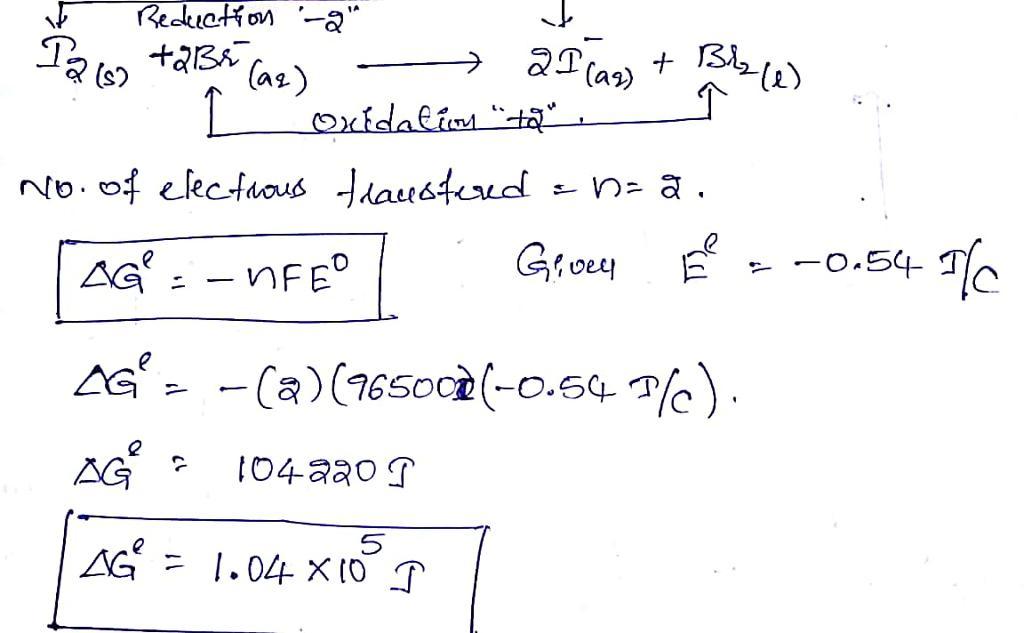 Reduction "-2"
I2(s) + 2Br⁻(aq) ⟶ 2I⁻(aq) + Br2(l)
Oxidation "+2".
No. of electrons transfered = n = 2.
ΔG° = -nFE° Given E° = -0.54 J/C
ΔG° = -(2)(96500)(-0.54 J/C).
ΔG° = 104220 J
ΔG° = 1.04 × 10⁵ J